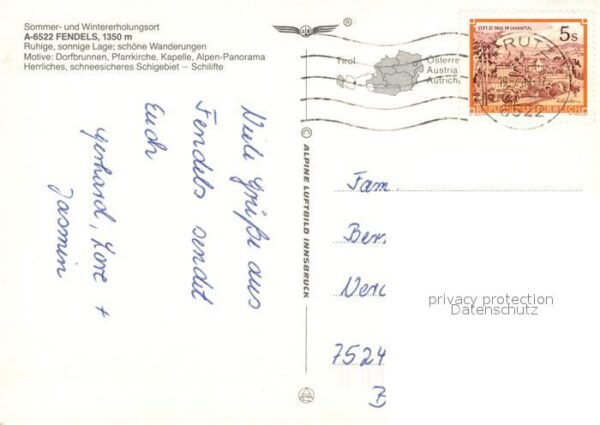 Sommer- und Wintererholungsort
A-6522 FENDELS, 1350 m
Ruhige, sonnige Lage; schöne Wanderungen
Motive: Dorfbrunnen, Pfarrkirche, Kapelle, Alpen-Panorama
Herrliches, schneesicheres Schigebiet – Schilifte
®
Tirol
Österre
Austria
Autrich
STIFT ST. PAUL IM LAVANTTAL
5s
REPUBLIK ÖSTERREICH
PRUTZ
6522
Viele Grüße aus
Fendels sendet
Euch
Gerhard, Lore +
Jasmin
© ALPINE LUFTBILD INNSBRUCK
Fam.
Ber
Nerc
7524
B
privacy protection
Datenschutz